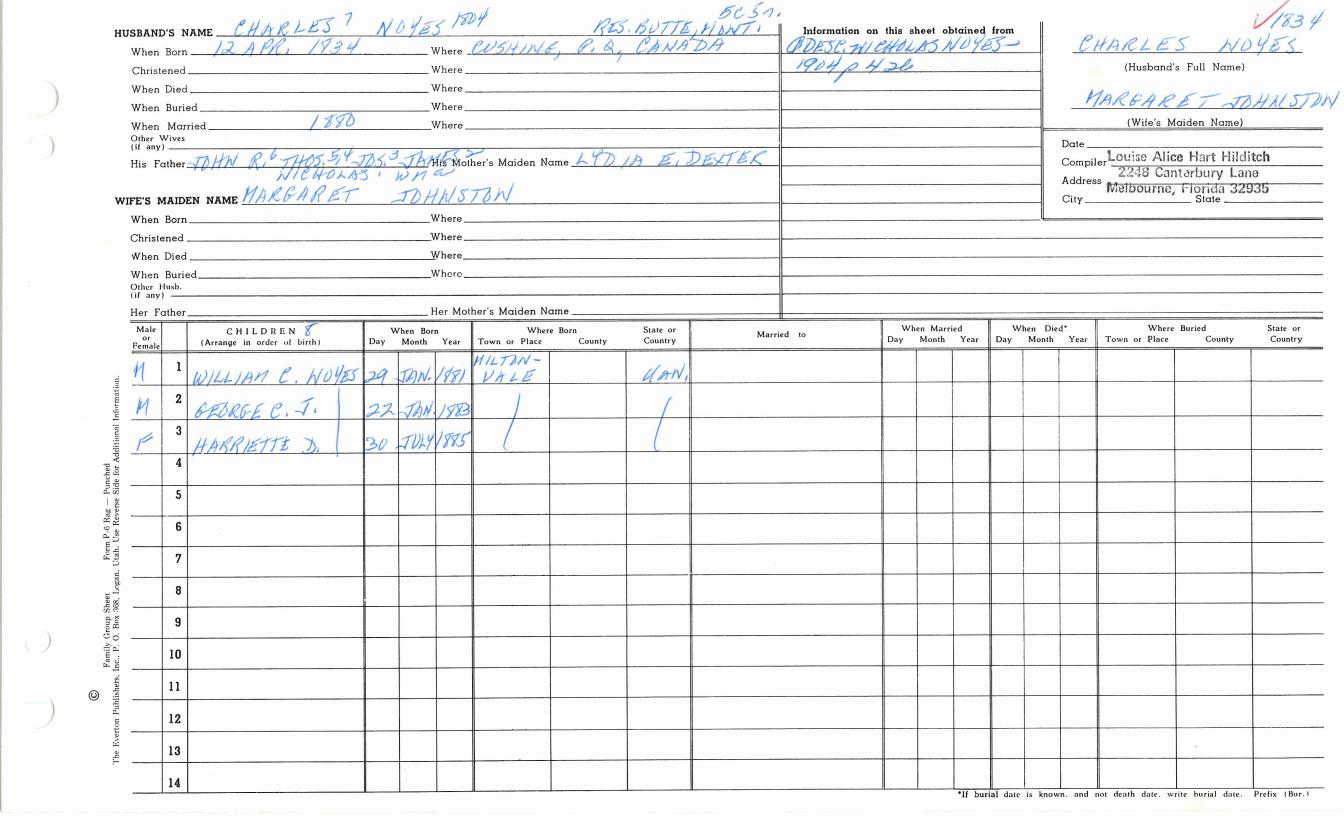 5C 5n.
HUSBAND'S NAME CHARLES 7 NOYES 1804 RES. BUTTE, MONT.
When Born 12 APR. 1834 Where CUSHING, P.Q, CANADA
Christened Where
When Died Where
When Buried Where
When Married 1880 Where
Other Wives
(if any)
His Father JOHN R.6 THOS.5,4 JOS.3 JAMES2 His Mother's Maiden Name LYDIA E. DEXTER
NICHOLAS1 WMa
WIFE'S MAIDEN NAME MARGARET JOHNSTON
When Born Where
Christened Where
When Died Where
When Buried Where
Other Husb.
(if any)
Her Father Her Mother's Maiden Name
Information on this sheet obtained from
DESC. NICHOLAS NOYES—
1904 p 426
✓1834
CHARLES NOYES
(Husband's Full Name)
MARGARET JOHNSTON
(Wife's Maiden Name)
Date
Compiler Louise Alice Hart Hilditch
Address 2248 Canterbury Lane
Melbourne, Florida 32935
City State
Male or Female CHILDREN 8 (Arrange in order of birth) When Born Day Month Year Where Born Town or Place County State or Country Married to When Married Day Month Year When Died* Day Month Year Where Buried Town or Place County State or Country
M 1 WILLIAM C. NOYES 29 JAN. 1881 MILTON-VALE KAN.
M 2 GEORGE C. J. 22 JAN. 1883
F 3 HARRIETTE D. 30 JULY 1885
4
5
6
7
8
9
10
11
12
13
14
*If burial date is known, and not death date, write burial date. Prefix (Bur.)
© Family Group Sheet Form P-6 Rag — Punched
The Everton Publishers, Inc., P. O. Box 368, Logan, Utah. Use Reverse Side for Additional Information.